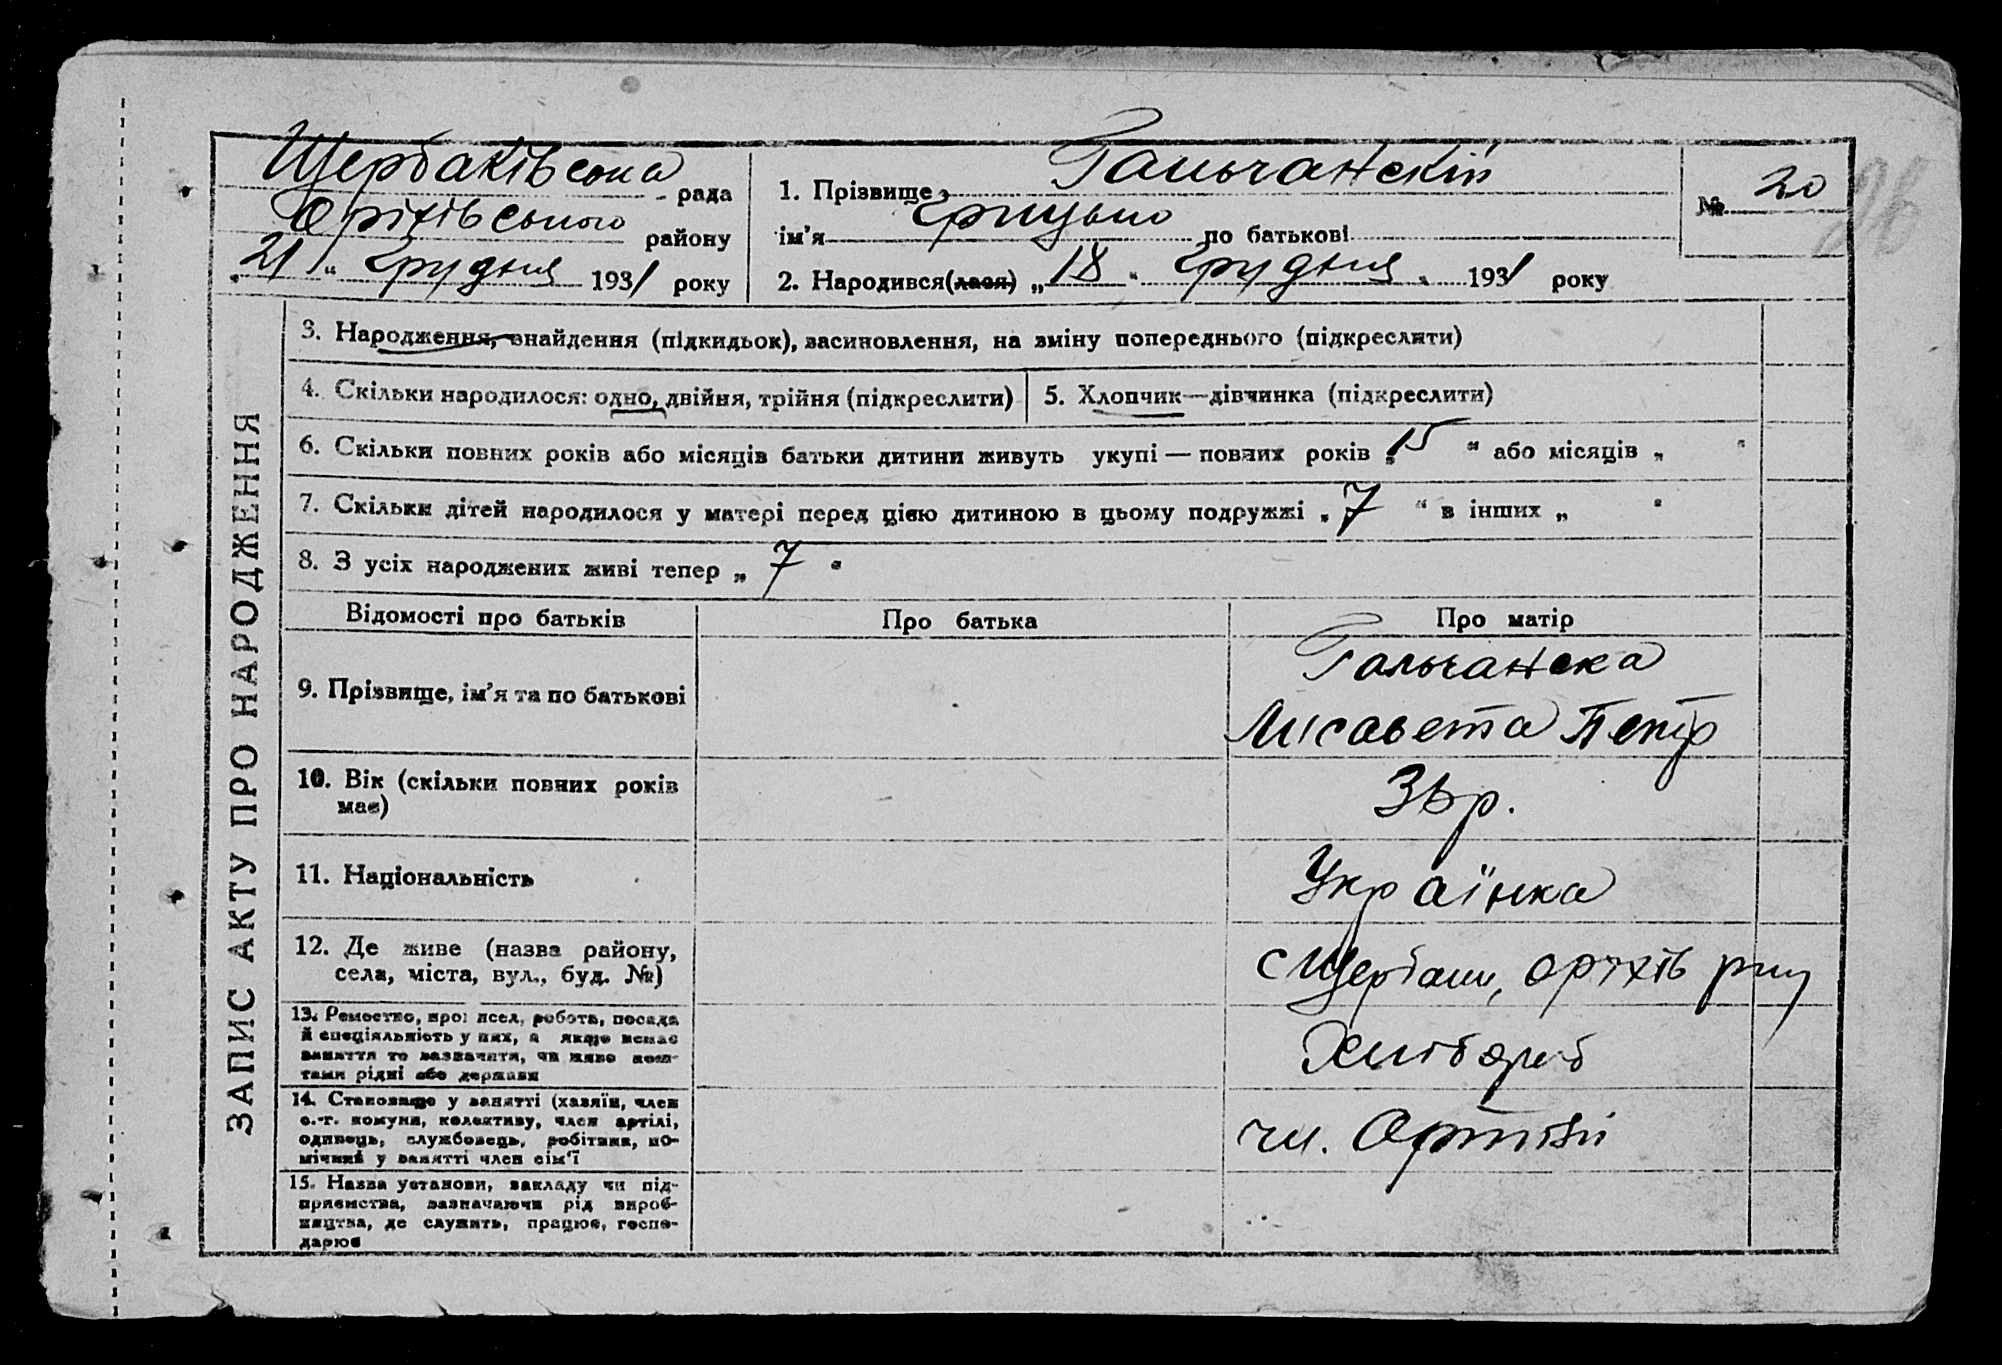 Щербаківська рада
Оріхівського району
„21“ грудня 1931 року
1. Прізвище Гальчанский
ім’я Грицько по батькові
2. Народився(лася) „18“ грудня 1931 року
№ 20
36
ЗАПИС АКТУ ПРО НАРОДЖЕННЯ
3. Народження, знайдення (підкидьок), засиновлення, на зміну попереднього (підкреслити)
4. Скільки народилося: одно, двійня, трійня (підкреслити)
5. Хлопчик—дівчинка (підкреслити)
6. Скільки повних років або місяців батьки дитини живуть укупі — повних років „15“ або місяців „ “
7. Скільки дітей народилося у матері перед цією дитиною в цьому подружжі „7“ в інших „ “
8. З усіх народжених живі тепер „7“
Відомості про батьків Про батька Про матір
9. Прізвище, ім’я та по батькові
Гальчанска
Лисавета Петр
10. Вік (скільки повних років
має)
36 р.
11. Національність
Українка
12. Де живе (назва району,
села, міста, вул., буд. №)
с Щербаки, оріхів рну
13. Ремество, професія, робота, посада
й спеціяльність у них, а якщо немає
заняття то зазначити, чи живе кош-
тами рідні або держави
Хлібороб
14. Становище у занятті (хазяїн, член
с.-г. комуни, колективу, член артілі,
одинець, службовець, робітник, по-
мічний у занятті член сім’ї
чл. Артілі
15. Назва установи, закладу чи під-
приємства, зазначаючи рід вироб-
ництва, де служить, працює, госпо-
дарює